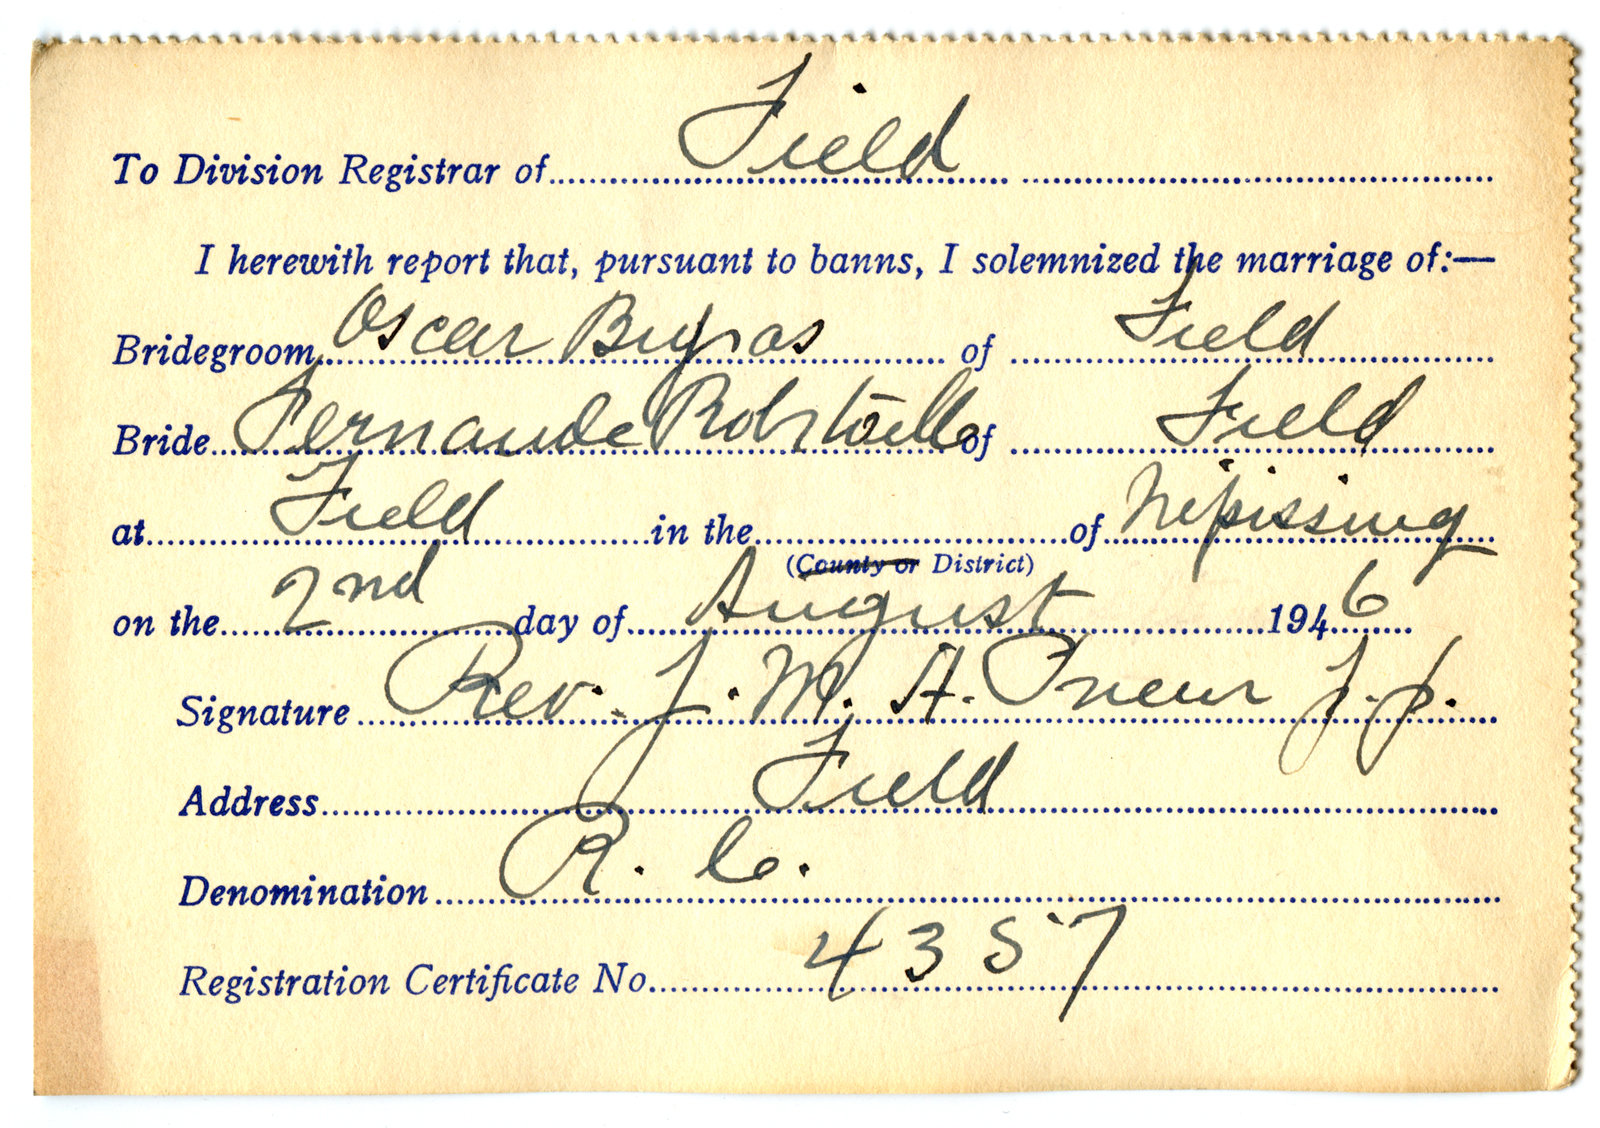 To Division Registrar of Field
I herewith report that, pursuant to banns, I solemnized the marriage of:—
Bridegroom Oscar of Field
Bride Fernande of Field
at Field in the of Nipissing
(County or District)
on the 2nd day of August 1946
Signature Rev. J. M. A.
Address Field
Denomination R. C.
Registration Certificate No. 4357